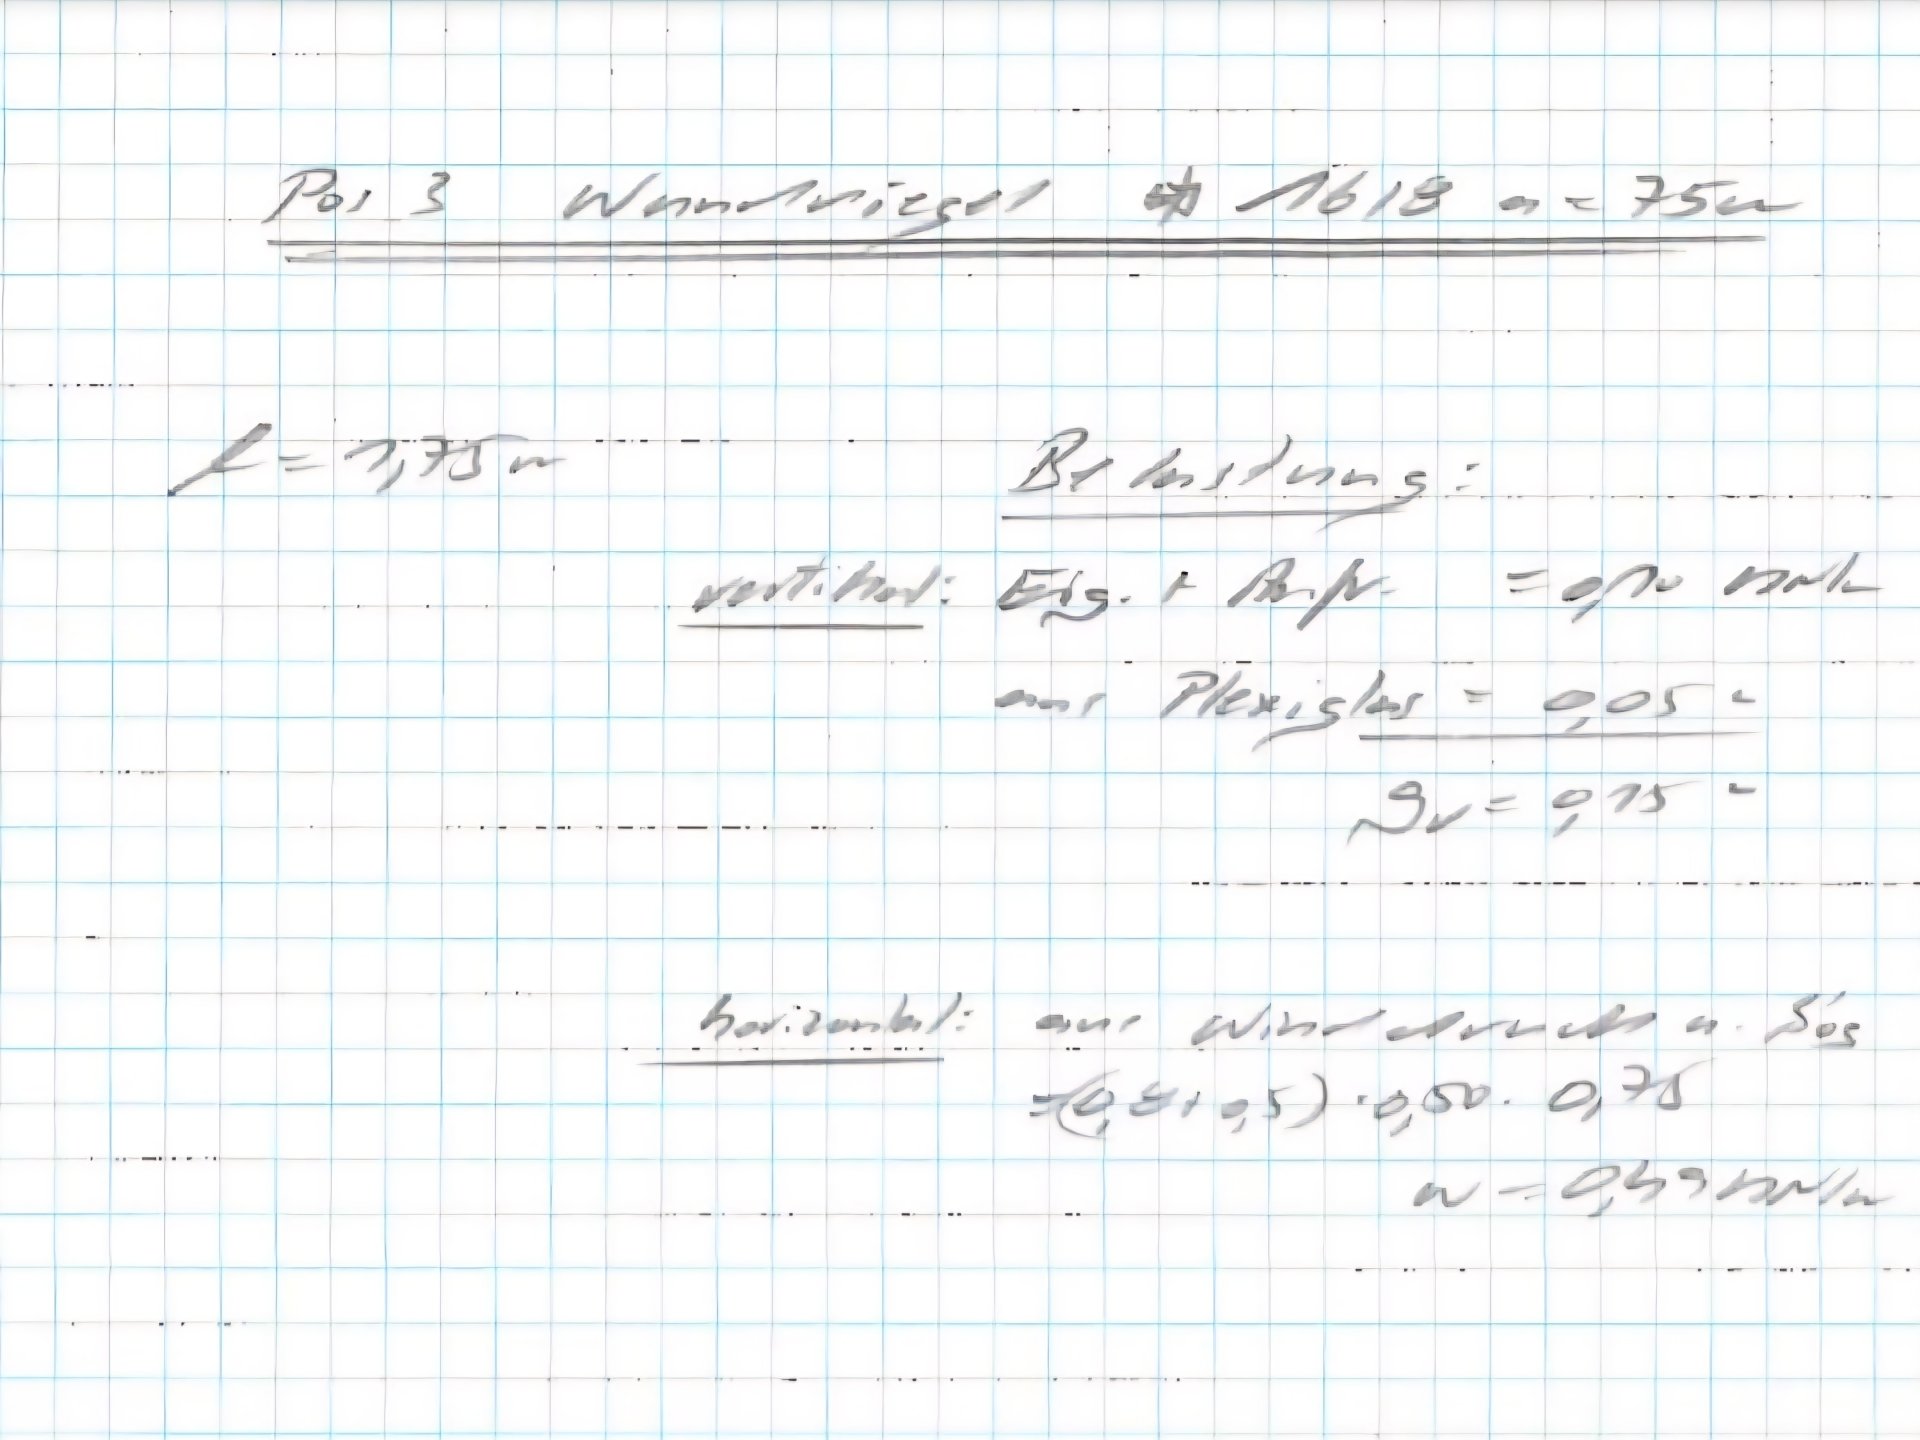 Pos 3 Wandriegel 16/8 a = 75
l = 1,75 m
Belastung:
vertikal: Eig. + = 0,10 kN/m
aus Plexiglas = 0,05 "
gv = 0,15 "
horizontal: aus Winddruck u. Sog
=(0,8+0,5)·0,50·0,75
w = 0,49 kN/m